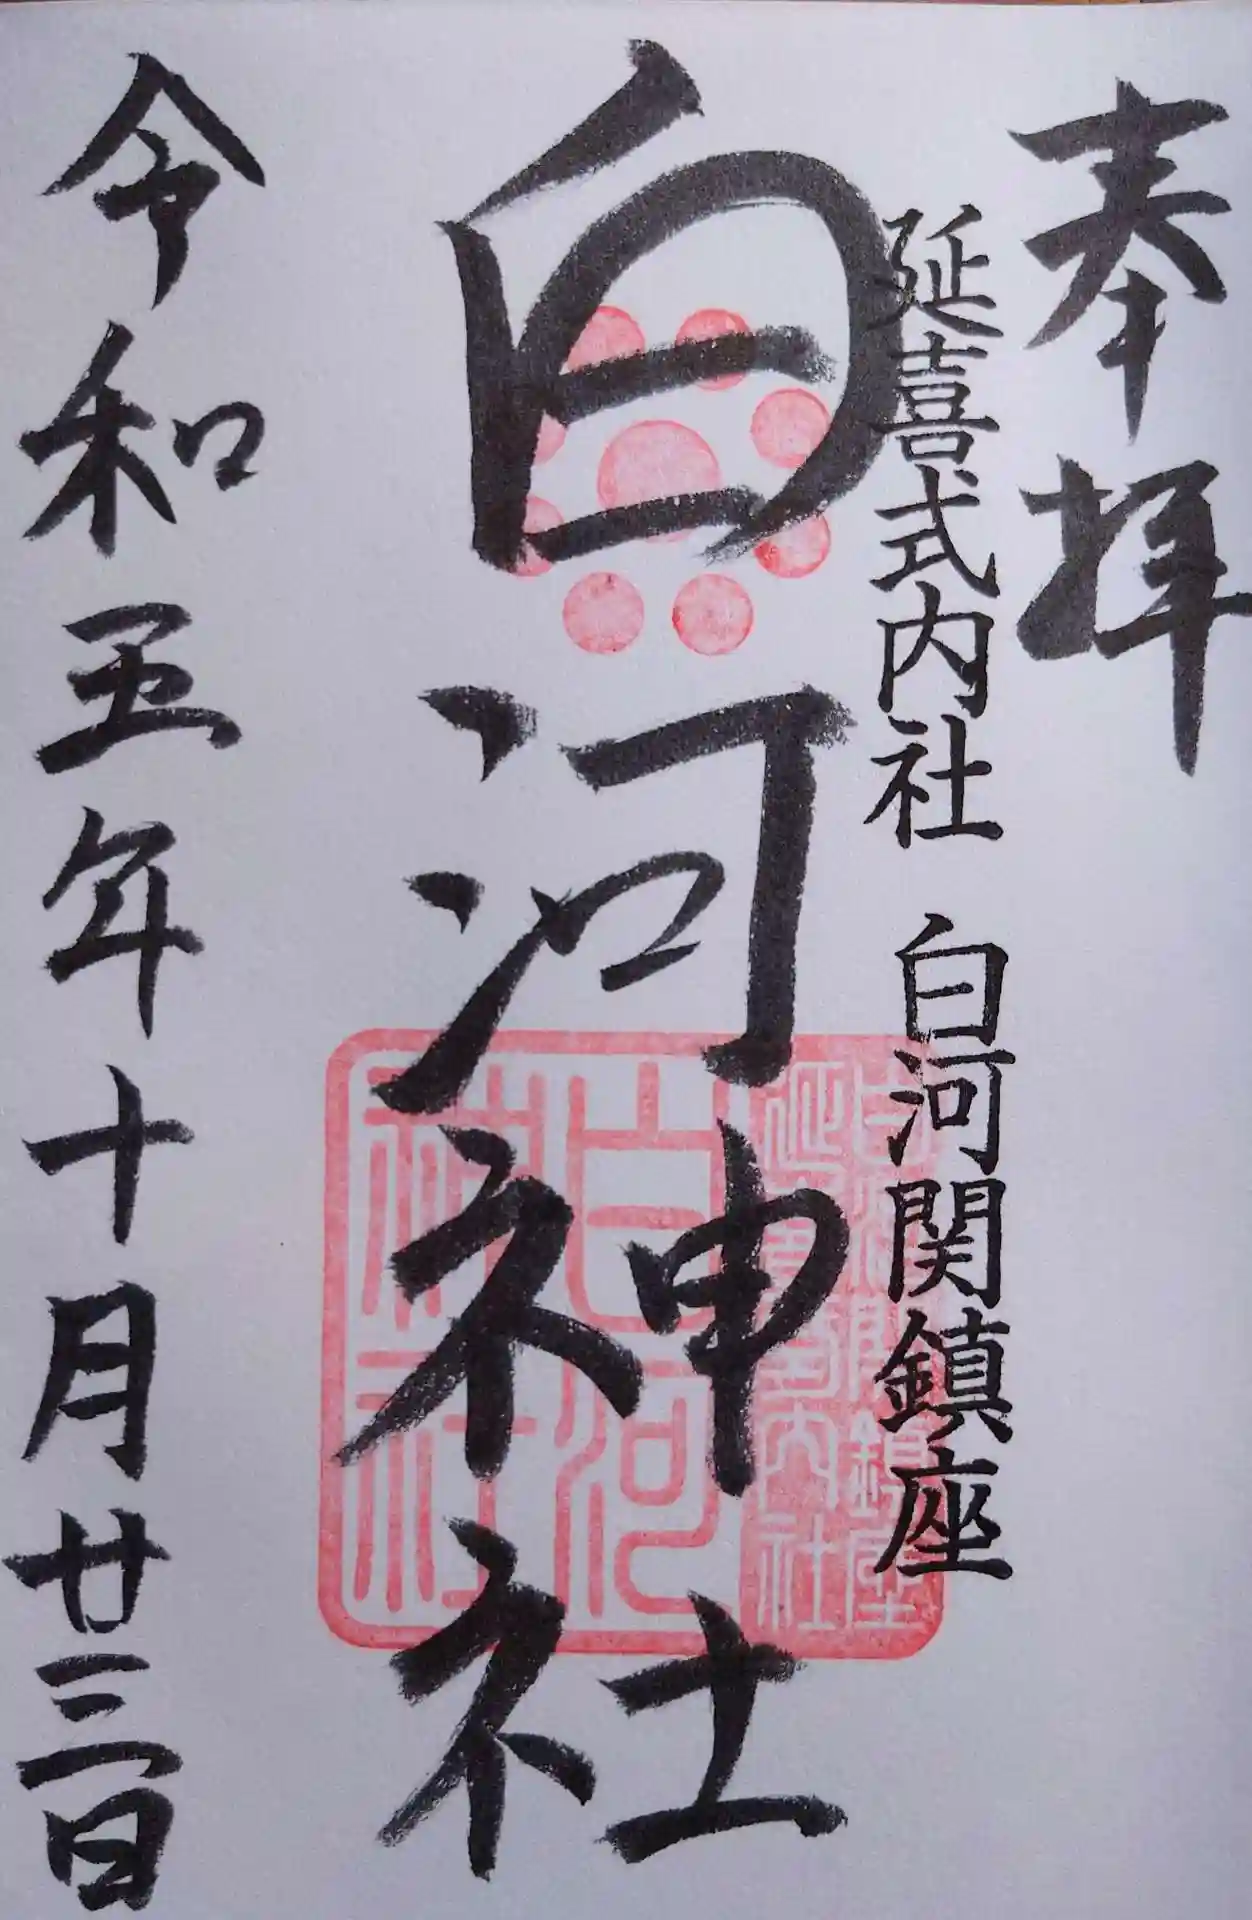 奉拝
延喜式内社 白河関鎮座
白河神社
白河関鎮座
延喜式内社
白河
神社
令和五年十月廿三日